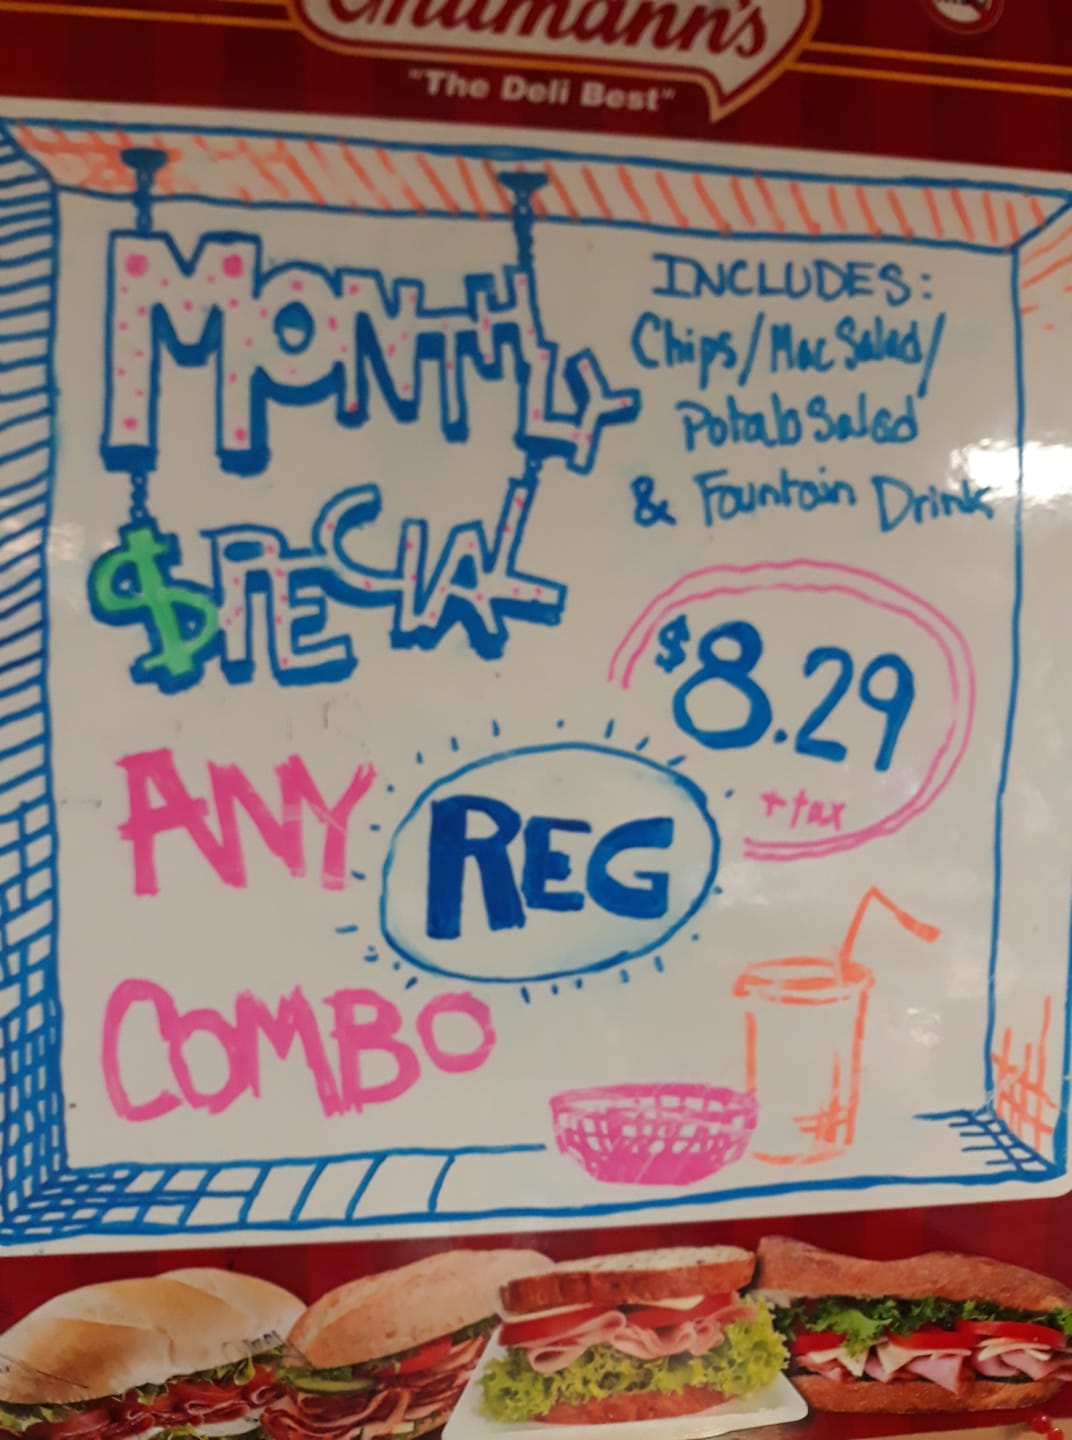 "The Deli Best"
MONTHLY
$PECIAL
INCLUDES:
Chips/Mac Salad/
Potato Salad
& Fountain Drink
$8.29
+ tax
ANY REG
COMBO